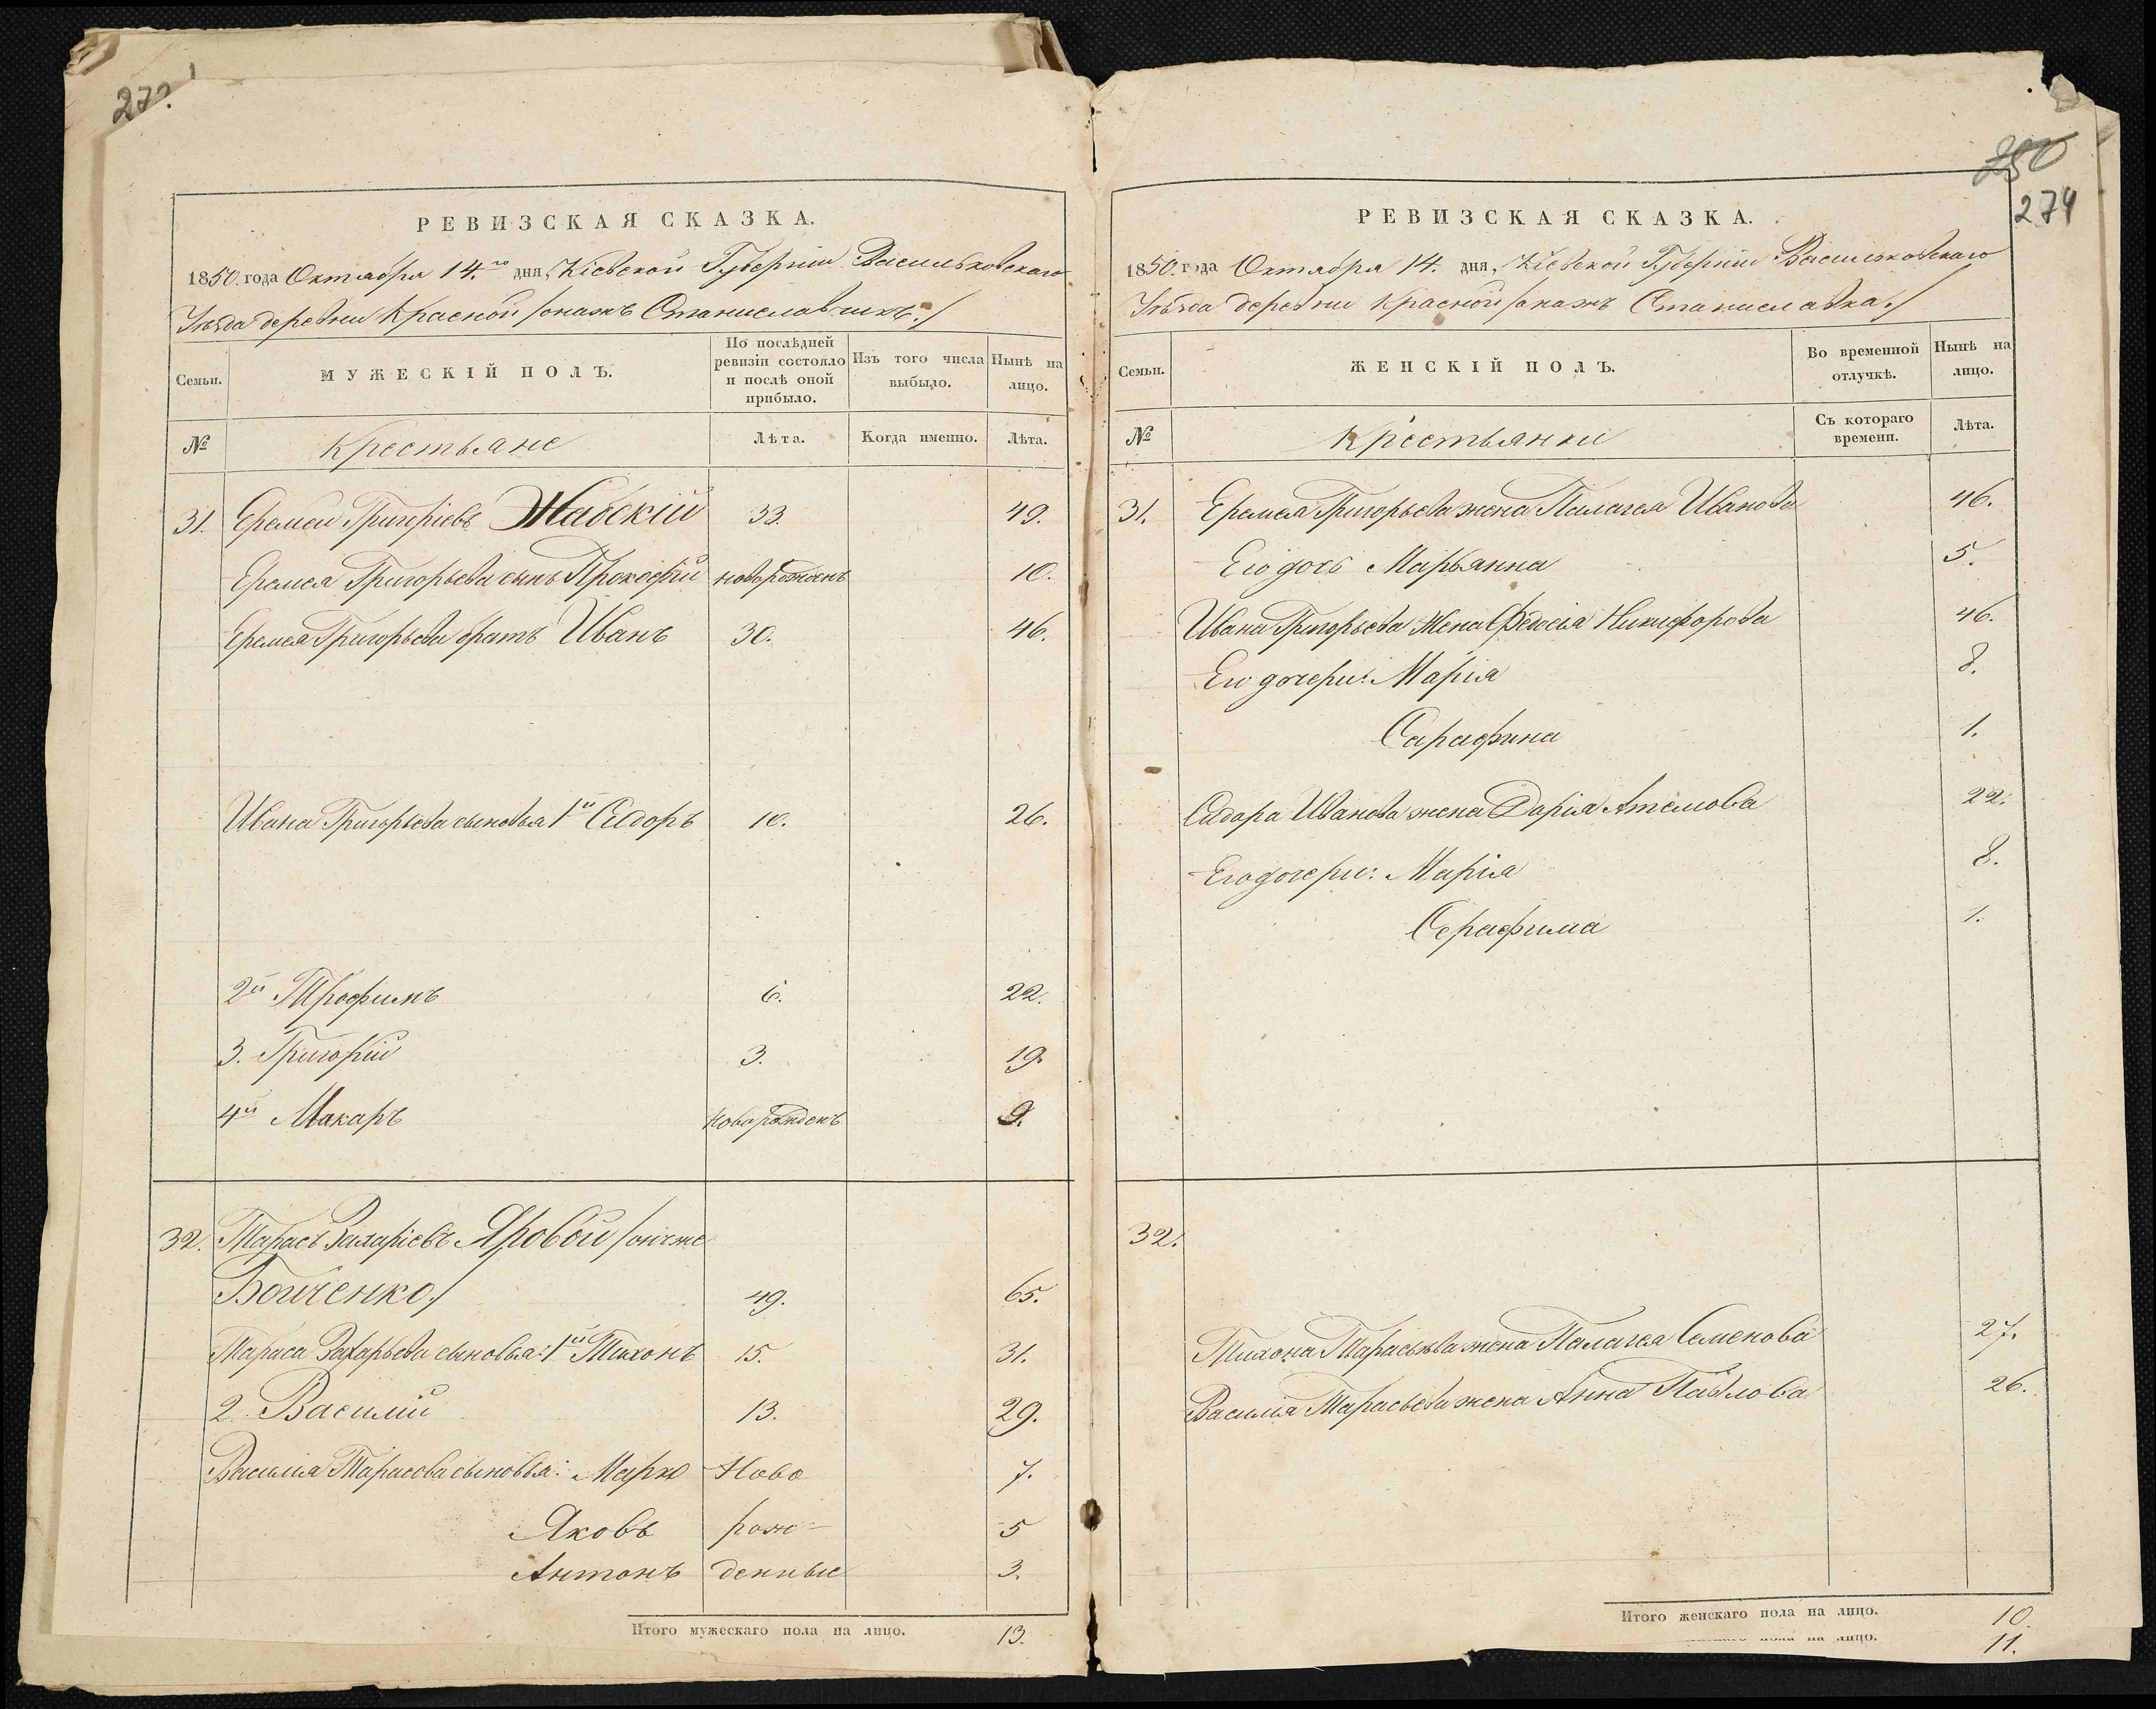 РЕВИЗСКАЯ СКАЗКА.
1850. года Октября 14.го дня, Кіевской Губерніи Васильковскаго
Уѣзда деревни Красной /онажъ Станиславчикъ./
Семьи.
МУЖЕСКІЙ ПОЛЪ.
По послѣдней ревизіи состояло и послѣ оной прибыло.
Изъ того числа выбыло.
Нынѣ на лицо.
№
Крестьяне
Лѣта.
Когда именно.
Лѣта.
31. Еремей Григоріевъ Жабскій 33. 49.
Еремея Григорьева сынъ Прокофій новорожденъ 10.
Еремея Григорьева братъ Иванъ 30. 46.
Ивана Григорьева сыновья 1й Сидоръ 10. 26.
2й Трофимъ 6. 22.
3. Григорій 3. 19.
4й Макаръ новорожденъ 9.
32. Тарасъ Захаріевъ Яровой /онъже
Бойченко/ 49. 65.
Тараса Захарьева сыновья: 1й Тихонъ 15. 31.
2. Василій 13. 29.
Василія Тарасова сыновья: Марко Ново 7.
Яковъ рож- 5
Антонъ денные 3.
Итого мужескаго пола на лицо. 13.
274
РЕВИЗСКАЯ СКАЗКА.
1850. года Октября 14. дня, Кіевской Губерніи Васильковскаго
Уѣзда деревни Красной /онажъ Станиславка./
Семьи.
ЖЕНСКІЙ ПОЛЪ.
Во временной отлучкѣ.
Нынѣ на лицо.
№
Крестьянки
Съ котораго времени.
Лѣта.
31. Еремея Григорьева жена Палагея Иванова 46.
Его дочь Марьянна 5.
Ивана Григорьева Жена Федосія Никифорова 46.
Его дочери: Марія 8.
Сарафина 1.
Сидора Иванова жена Дарія Атемова 22.
Его дочери: Марія 8.
Серафима 1.
32.
Тихона Тарасьева жена Палагея Семенова 27.
Василія Тарасьева жена Анна Павлова 26.
Итого женскаго пола на лицо. 10
пола на лицо. 11.